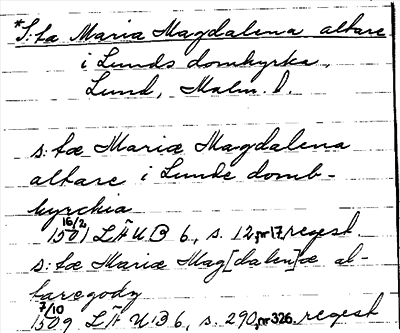 *S:ta Maria Magdalena altare
i Lunds domkyrka,
Lund, Malm. l.
s:tæ Mariæ Magdalena
altare i Lunde domb-
kyrckia
16/2
1501 LÄUB 6, s. 12, nr 17, regest.
s:tæ Mariæ Mag[dalen]æ al-
taregodz
7/10
1509 LÄUB 6, s. 290, nr 326. regest